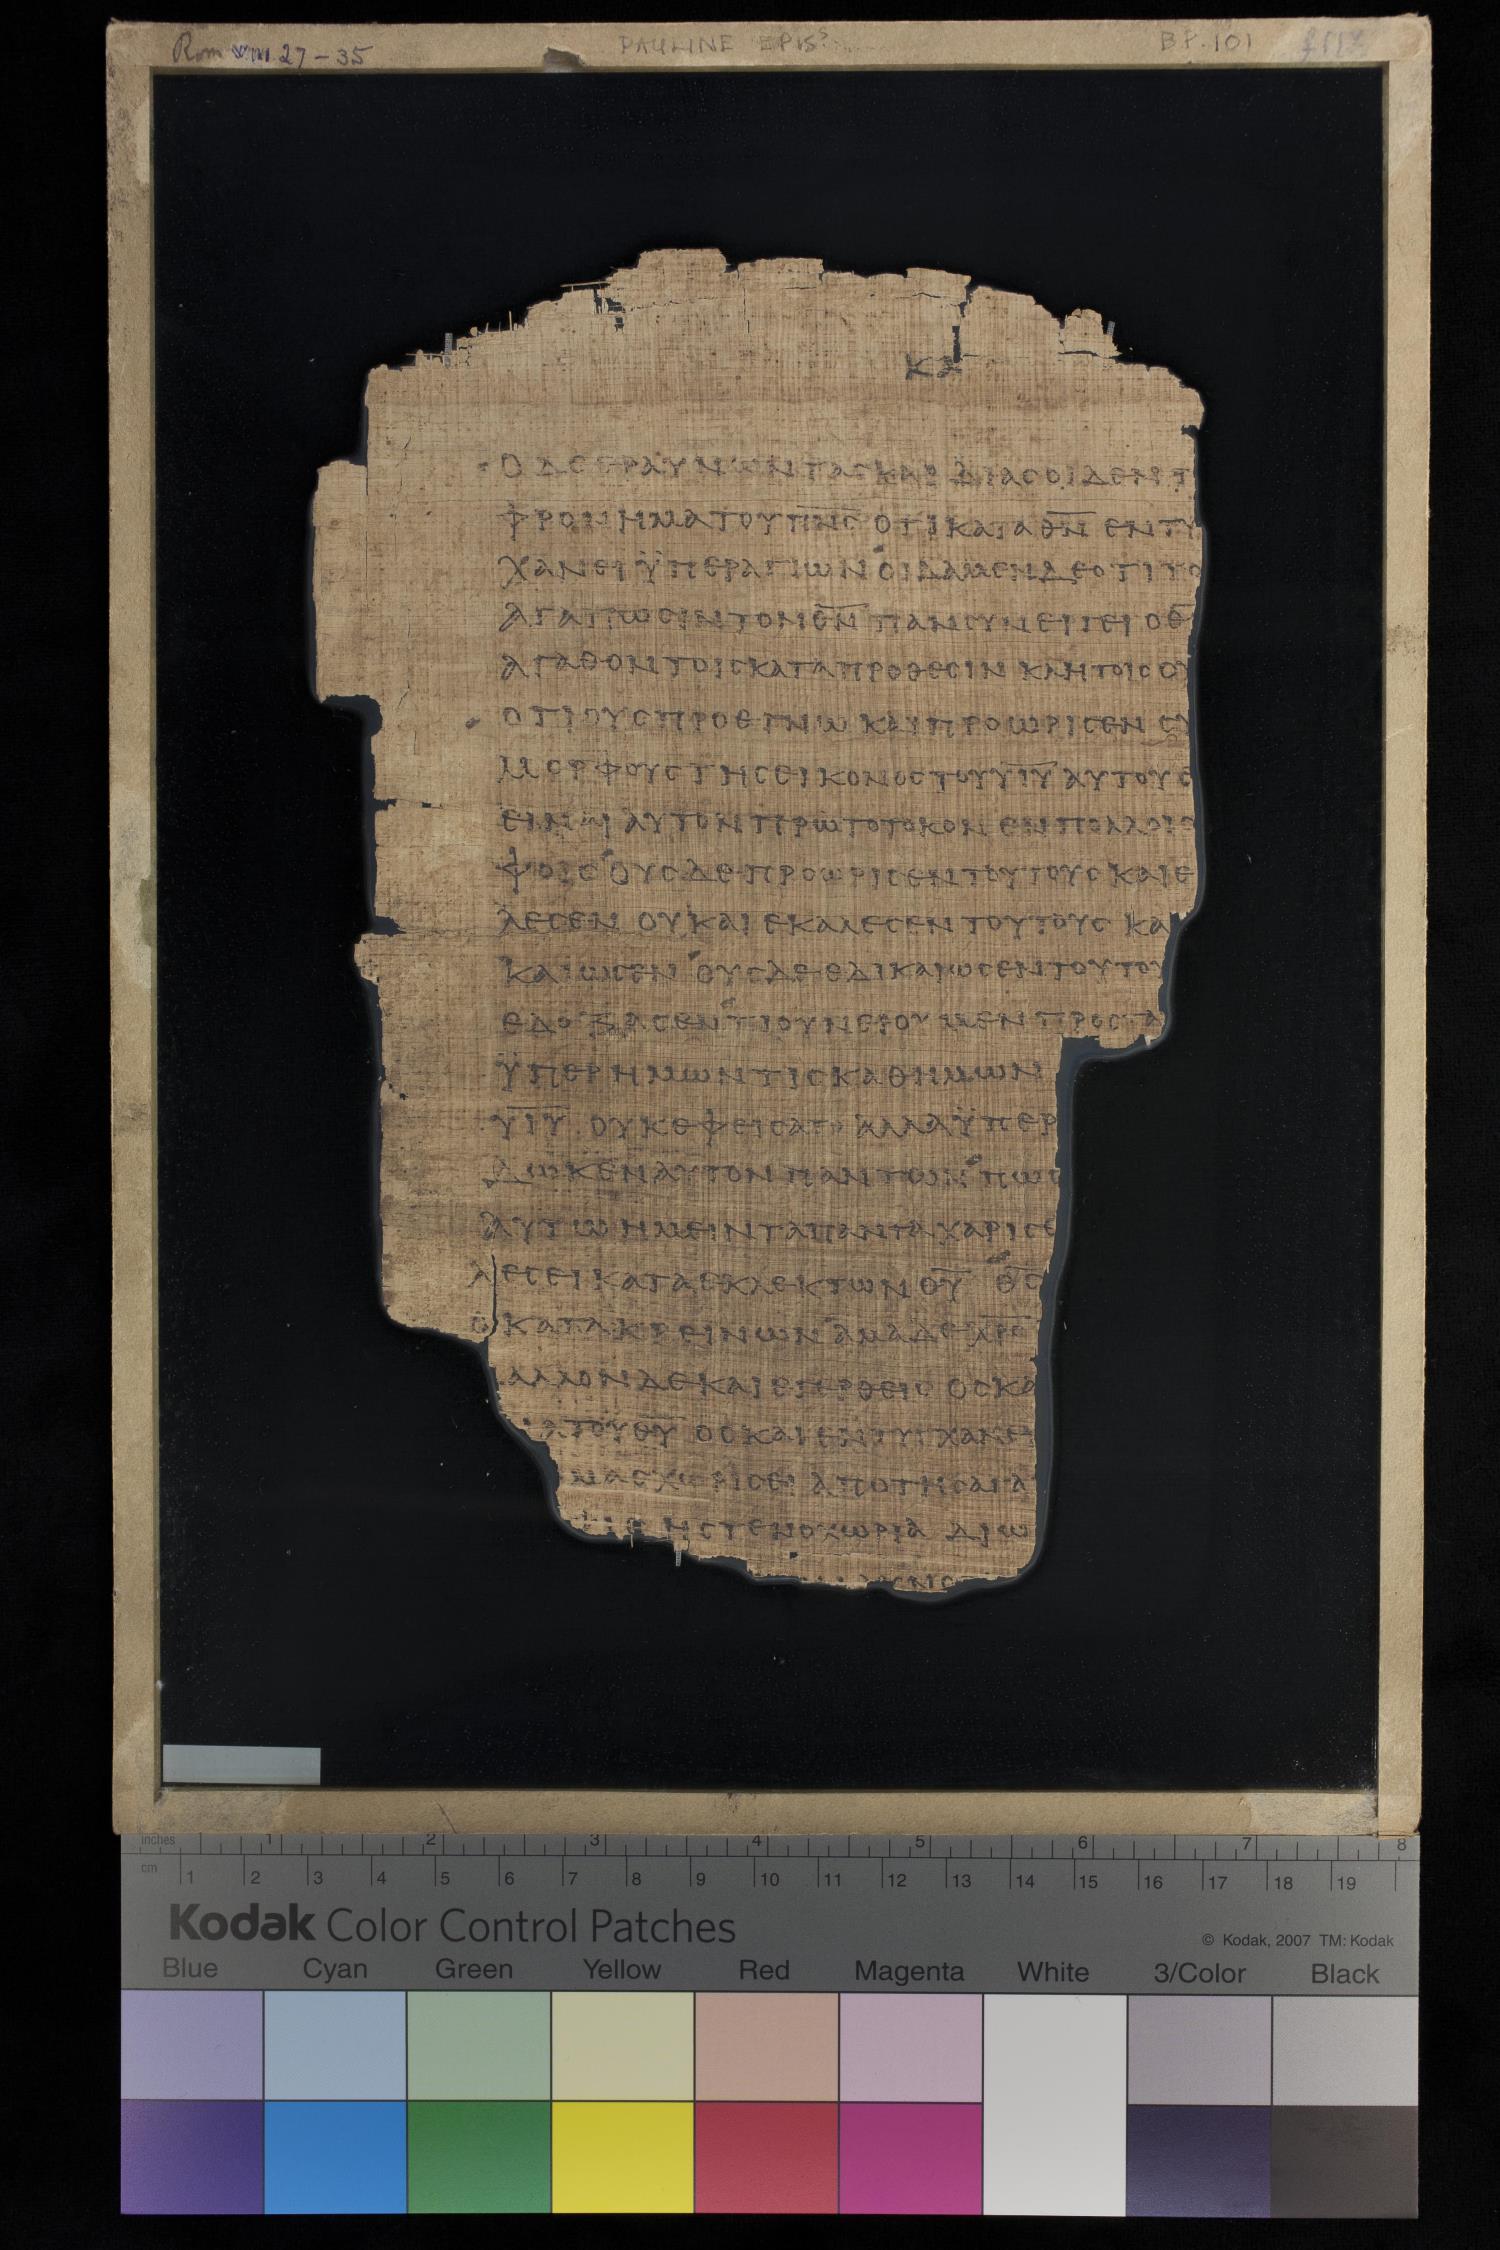 Rom VIII 27-35
PAULINE EPIS
BP.101
ΚΑ
Ο ΔΕ ΕΡΑΥΝΩΝ ΤΑΣ ΚΑΡΔΙΑΣ ΟΙΔΕΝ Τ
ΦΡΟΝΗΜΑ ΤΟΥ Π̅Ν̅Σ̅ ΟΤΙ ΚΑΤΑ Θ̅Ν̅ ΕΝΤΥ
ΧΑΝΕΙ ΫΠΕΡ ΑΓΙΩΝ ΟΙΔΑΜΕΝ ΔΕ ΟΤΙ ΤΟ
ΑΓΑΠΩΣΙΝ ΤΟΝ Θ̅Ν̅ ΠΑΝ ΣΥΝΕΡΓΕΙ Ο Θ̅
ΑΓΑΘΟΝ ΤΟΙΣ ΚΑΤΑ ΠΡΟΘΕΣΙΝ ΚΛΗΤΟΙΣ ΟΥ
ΟΤΙ ΟΥΣ ΠΡΟΕΓΝΩ ΚΑΙ ΠΡΟΩΡΙΣΕΝ ΣΥ
ΜΟΡΦΟΥΣ ΤΗΣ ΕΙΚΟΝΟΣ ΤΟΥ Υ̅Ι̅Υ̅ ΑΥΤΟΥ Ε
ΕΙΝΑΙ ΑΥΤΟΝ ΠΡΩΤΟΤΟΚΟΝ ΕΝ ΠΟΛΛΟΙΣ
ΦΟΙΣ ΟΥΣ ΔΕ ΠΡΟΩΡΙΣΕΝ ΤΟΥΤΟΥΣ ΚΑΙ Ε
ΛΕΣΕΝ ΟΥ ΚΑΙ ΕΚΑΛΕΣΕΝ ΤΟΥΤΟΥΣ ΚΑ
ΚΑΙΩΣΕΝ ΟΥΣ ΔΕ ΕΔΙΚΑΙΩΣΕΝ ΤΟΥΤΟΥ
ΕΔΟΞΑΣΕΝ ΤΙ ΟΥΝ ΕΡΟΥΜΕΝ ΠΡΟΣ ΤΑ
ΫΠΕΡ ΗΜΩΝ ΤΙΣ ΚΑΘ ΗΜΩΝ
Υ̅Ι̅Υ̅ ΟΥΚ ΕΦΕΙΣΑΤΟ ΑΛΛΑ ΫΠΕΡ
ΔΩΚΕΝ ΑΥΤΟΝ ΠΑΝΤΩΝ ΠΩΣ
ΑΥΤΩ ΗΜΕΙΝ ΤΑ ΠΑΝΤΑ ΧΑΡΙΣΕ
ΛΕΣΕΙ ΚΑΤΑ ΕΚΛΕΚΤΩΝ Θ̅Υ̅ Θ̅Σ̅
Ο ΚΑΤΑΚΡΕΙΝΩΝ ΑΜΑ ΔΕ Χ̅Ρ̅Σ̅
ΑΛΛΟΝ ΔΕ ΚΑΙ ΕΓΕΡΘΕΙΣ ΟΣ ΚΑ
ΙΑ ΤΟΥ Θ̅Υ̅ ΟΣ ΚΑΙ ΕΝΤΥΓΧΑΝΕΙ
ΜΑΣ ΧΩΡΙΣΕΙ ΑΠΟ ΤΗΣ ΑΓΑ
Η ΣΤΕΝΟΧΩΡΙΑ ΔΙΩ
inches 1 2 3 4 5 6 7 8
cm 1 2 3 4 5 6 7 8 9 10 11 12 13 14 15 16 17 18 19
Kodak Color Control Patches
© Kodak, 2007 TM: Kodak
Blue Cyan Green Yellow Red Magenta White 3/Color Black